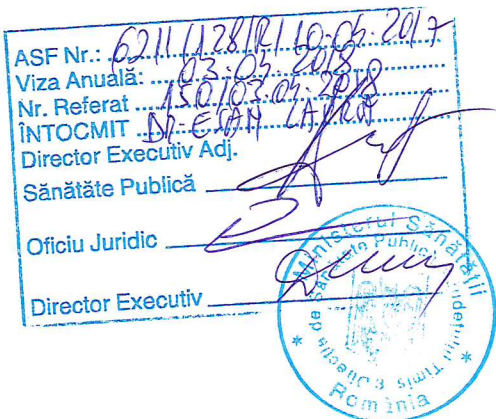 ASF Nr.: 6211/128/R/10.05.2017
Viza Anuală: 03.05.2018
Nr. Referat 150/03.05.2018
ÎNTOCMIT DR. ESAM
Director Executiv Adj.
Sănătăte Publică
Oficiu Juridic
Director Executiv
Ministerul Sănătății
Direcția de Sănătate Publică a Județului Timiș
România